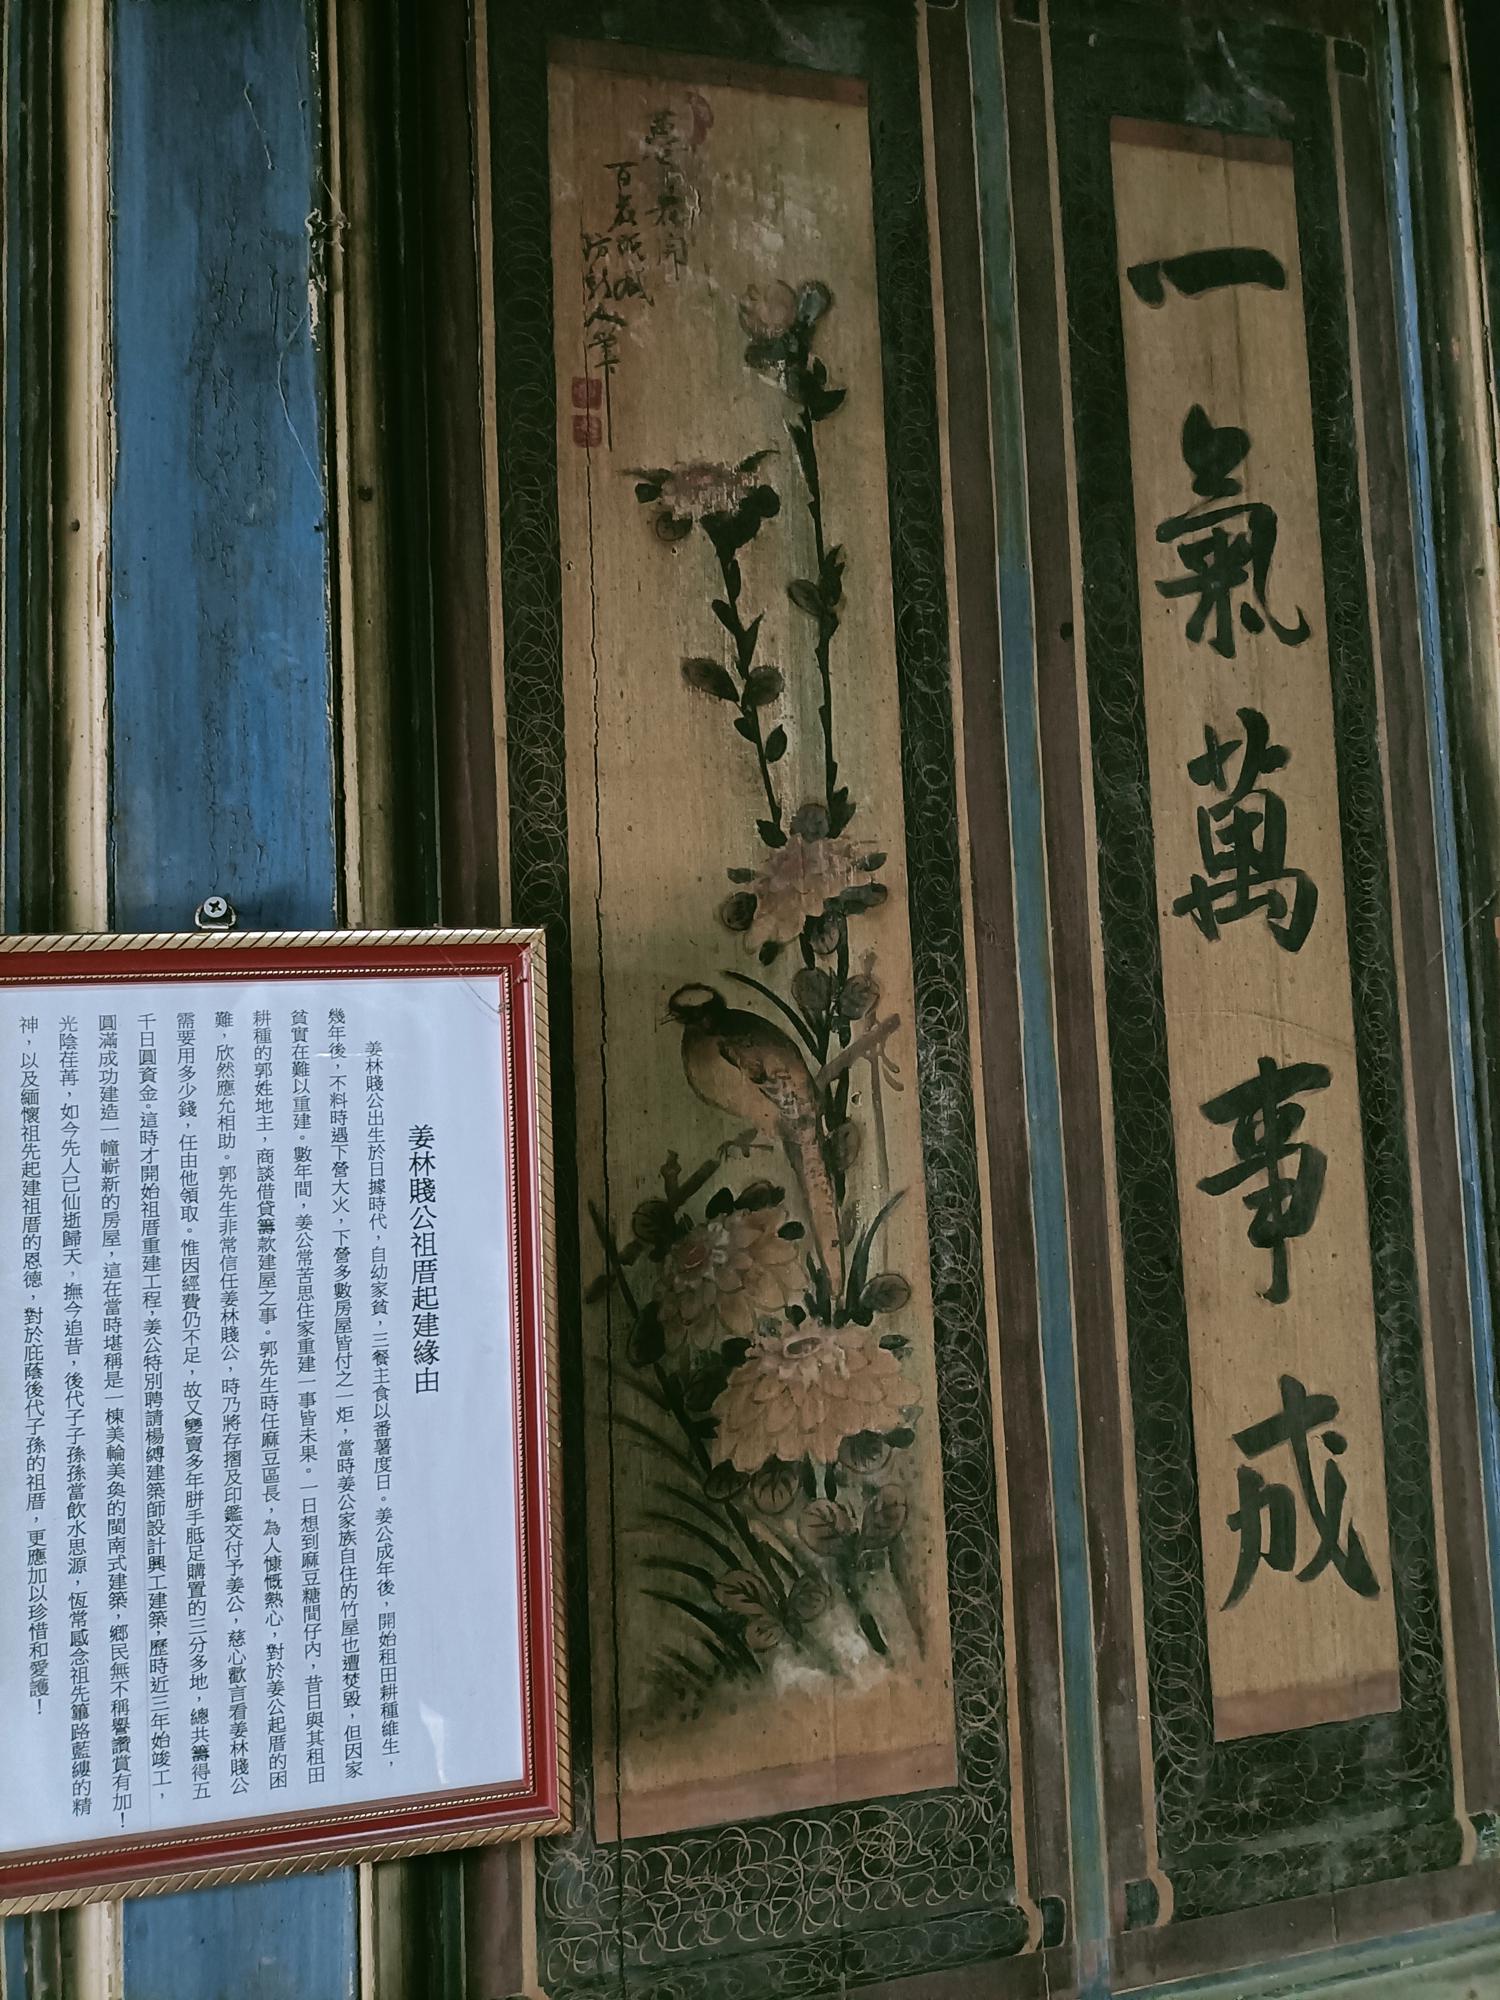 一氣萬事成
百花
人筆
姜林賤公祖厝起建緣由
姜林賤公出生於日據時代，自幼家貧，三餐主食以番薯度日。姜公成年後，開始租田耕種維生，
幾年後，不料時遇下營大火，下營多數房屋皆付之一炬，當時姜公家族自住的竹屋也遭焚毀，但因家
貧實在難以重建。數年間，姜公常苦思住家重建一事皆未果。一日想到麻豆糖間仔內，昔日與其租田
耕種的郭姓地主，商談借貸籌款建屋之事。郭先生時任麻豆區長，為人慷慨熱心，對於姜公起厝的困
難，欣然應允相助。郭先生非常信任姜林賤公，時乃將存摺及印鑑交付予姜公，慈心歡言看姜林賤公
需要用多少錢，任由他領取。惟因經費仍不足，故又變賣多年胼手胝足購置的三分多地，總共籌得五
千日圓資金。這時才開始祖厝重建工程，姜公特別聘請楊縛建築師設計興工建築，歷時近三年始竣工，
圓滿成功建造一幢嶄新的房屋，這在當時堪稱是一棟美輪美奐的閩南式建築，鄉民無不稱譽讚賞有加！
光陰荏苒，如今先人已仙逝歸天，撫今追昔，後代子子孫孫當飲水思源，恆常感念祖先篳路藍縷的精
神，以及緬懷祖先起建祖厝的恩德，對於庇蔭後代子孫的祖厝，更應加以珍惜和愛護！